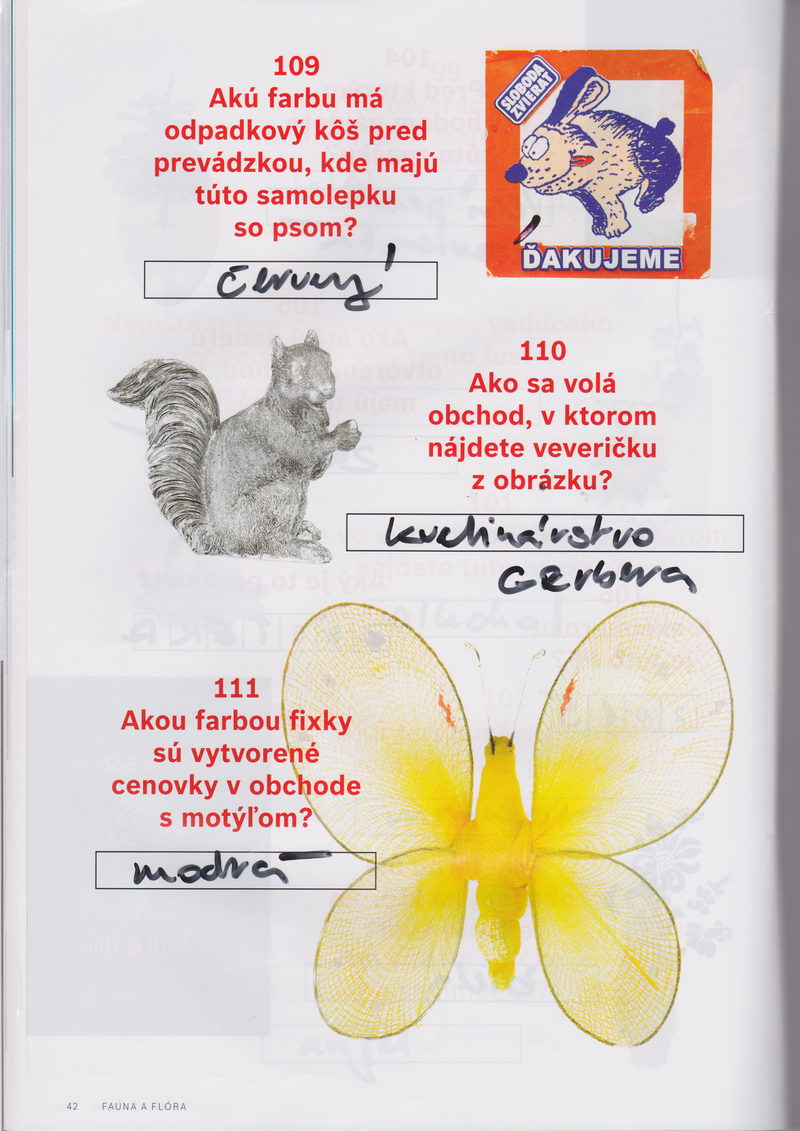 109
Akú farbu má
odpadkový kôš pred
prevádzkou, kde majú
túto samolepku
so psom?
červený
SLOBODA
ZVIERAT
ĎAKUJEME
110
Ako sa volá
obchod, v ktorom
nájdete veveričku
z obrázku?
kvetinárstvo
Gerbera
111
Akou farbou fixky
sú vytvorené
cenovky v obchode
s motýľom?
modrá
42 FAUNA A FLÓRA